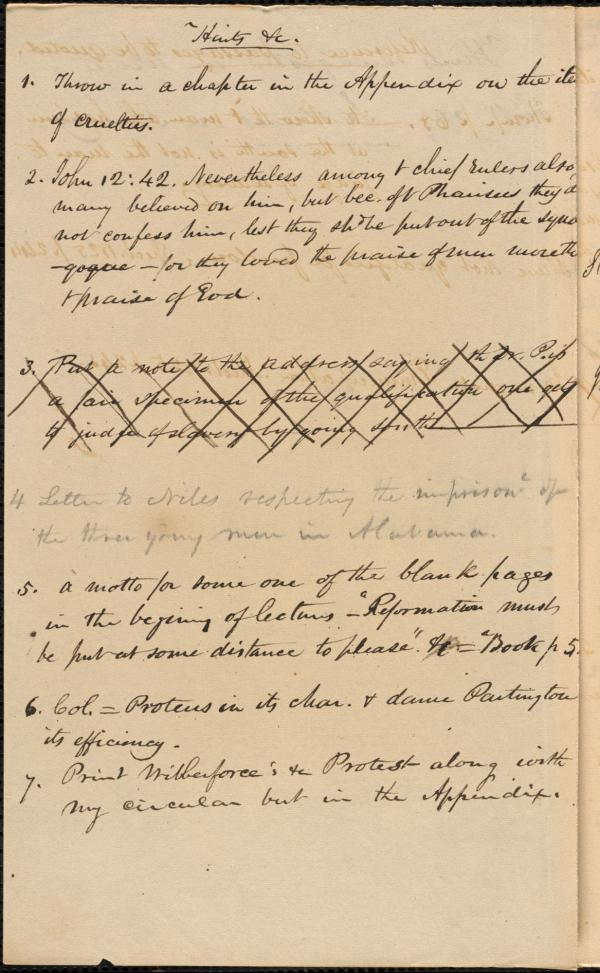 Hints &c.
1. Throw in a chapter in the Appendix on the ite
of cruelties.
2. John 12:42. Nevertheless among t chief Rulers also
many believed on him, but bec. of t Pharisees they d
not confess him, lest they shd be put out of the syna
-gogue - for they loved the praise of men more th
t praise of God.
3. Put a note to the address saying th Dr. P. is
a fair specimen of the qualification one gets
to judge of slavery by going south
4 Letter to Niles respecting the imprisont of
the three young men in Alabama.
5. a motto for some one of the blank pages
in the begining of lectures - "Reformation must
be put at some distance to please". &c = "Book p 5.
6. Col. = Proteus in its char. & dame Partington
its efficiency.
7. Print Wilberforce's &c Protest along with
my circular but in the Appendix.